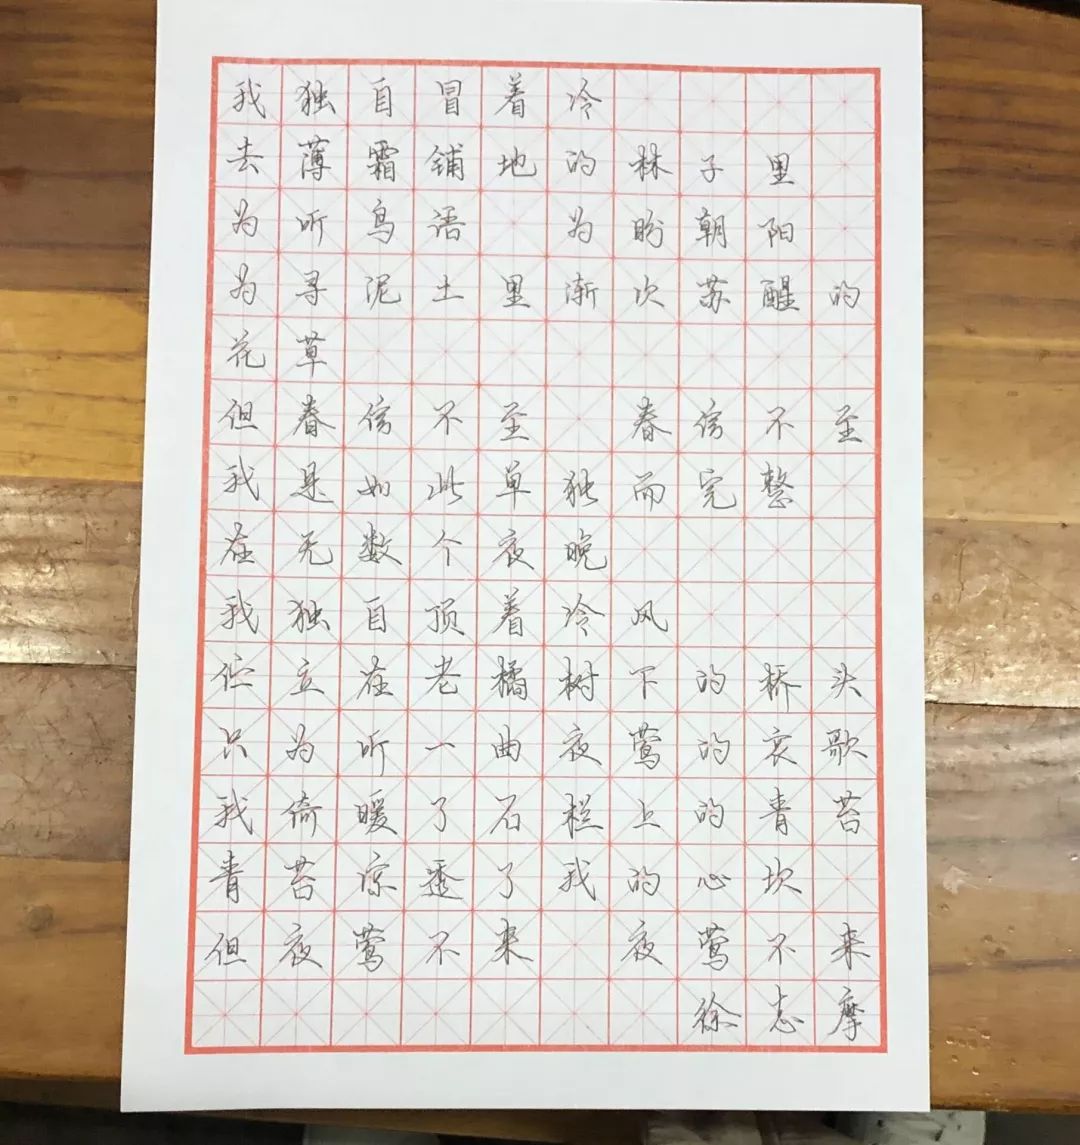 我独自冒着冷
去薄霜铺地的林子里
为听鸟语 为盼朝阳
为寻泥土里渐次苏醒的
花草
但春信不至 春信不至
我是如此单独而完整
在无数个夜晚
我独自顶着冷风
伫立在老橘树下的桥头
只为听一曲夜莺的哀歌
我倚暖了石栏上的青苔
青苔凉透了我的心坎
但夜莺不来 夜莺不来
徐志摩